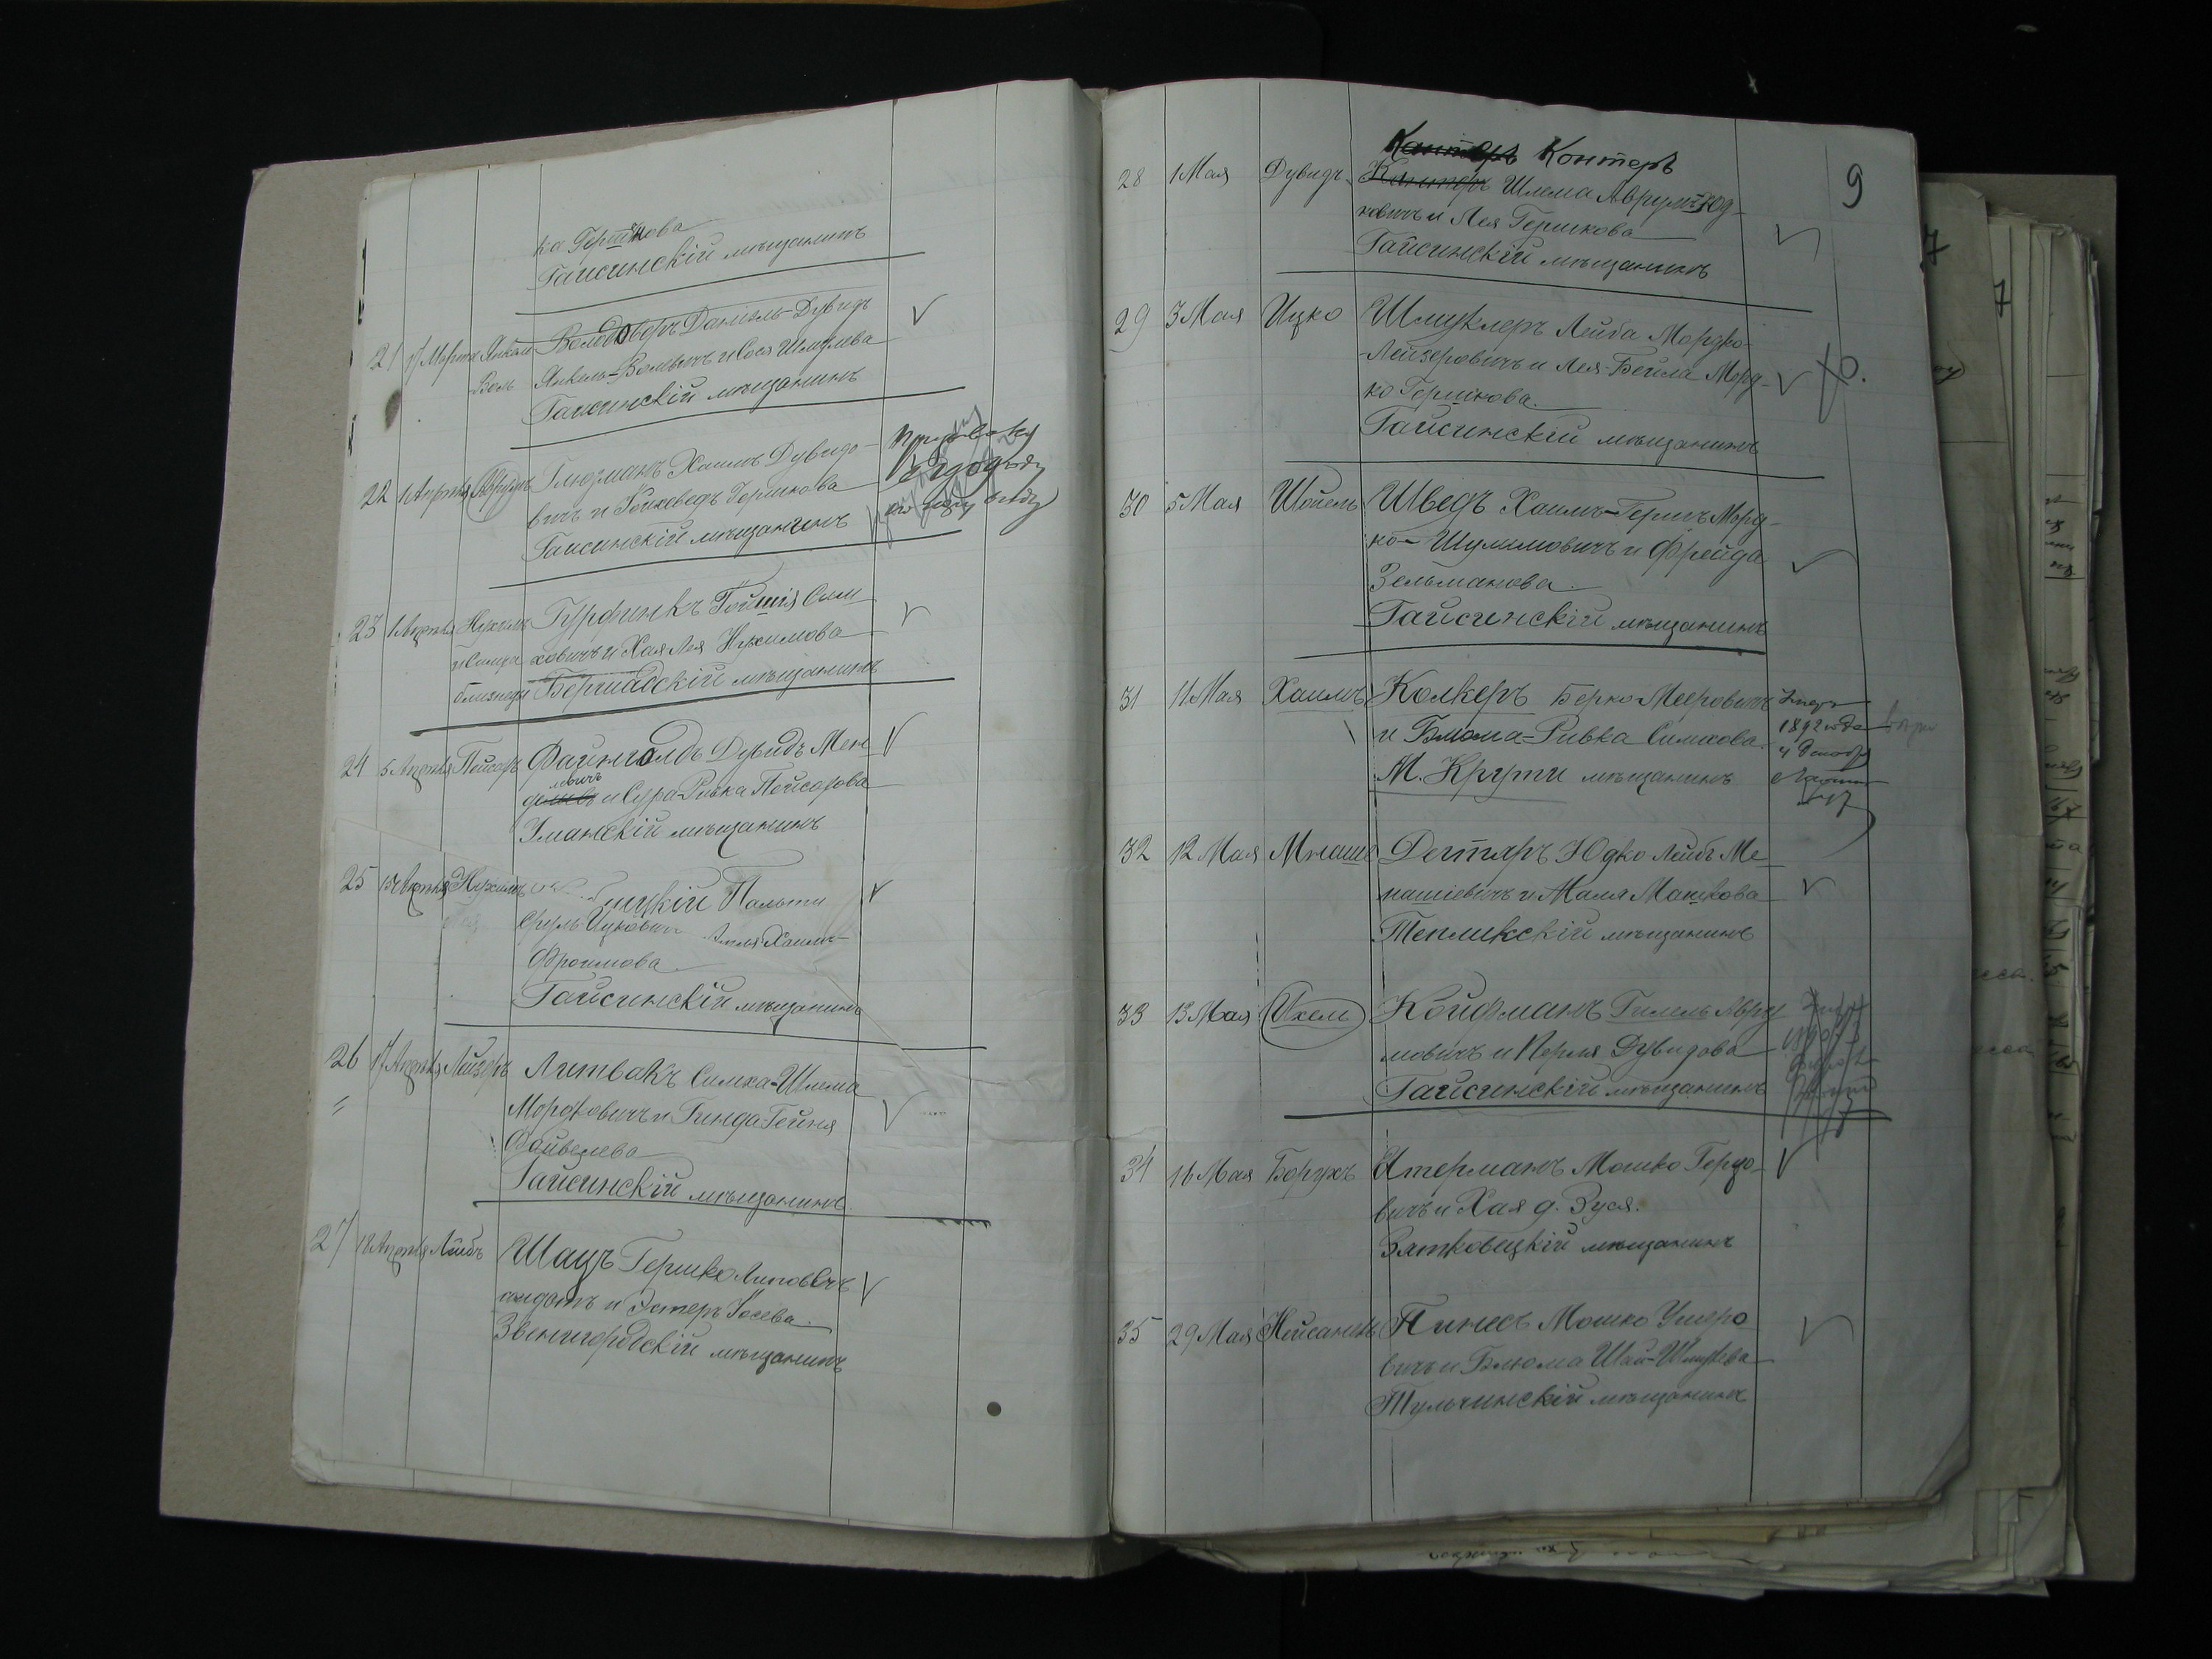 ко Гершкова
Гайсинскій мѣщанинъ
21 17 Марта Янкель Володоверъ Даніель-Дувидъ
Воль Янкель-Вольвичъ и Сося Шмулева
Гайсинскій мѣщанинъ
22 1 Апрѣля Аврумъ Глюзманъ Хаимъ Дувидо-
вичъ и Йохеведъ Гершкова
Гайсинскій мѣщанинъ
23 1 Апрѣля Нухимъ Гурфинкъ Гойшія Сим
и Симха ховичъ и Хая Лея Нухимова
близнецы Бершадскій мѣщанинъ
24 5 Апрѣля Пейсахъ Файнголдъ Дувидъ Мен
левичъ
и Сура-Ривка Пейсахова
Уманскій мѣщанинъ
25 15 Апрѣля Нухимъ Палыти
Сруль Ицковичъ Хаимъ-
Фроимова
Гайсинскій мѣщанинъ
26 17 Апрѣля Лейзоръ Литвакъ Симха-Шлема
Мордковичъ и Гинда-Гейня
Файвелева
Гайсинскій мѣщанинъ
27 18 Апрѣля Лейбъ Шацъ Гершко Липовичъ
и Эстеръ Йосева
Звенигородскій мѣщанинъ
9
Канторъ Конторъ
28 1 Мая Дувидъ Шлема Аврумъ-Юд-
ковичъ и Лея Гершкова
Гайсинскій мѣщанинъ
29 3 Мая Ицко Шмуклеръ Лейба Мордко-
Лейзеровичъ и Лея-Бейла Морд-
ко Гершкова
Гайсинскій мѣщанинъ
30 5 Мая Шоиель Шведъ Хаимъ-Гершъ Морд-
ко-Шулимовичъ и Фрейда
Зельманова
Гайсинскій мѣщанинъ
31 11 Мая Хаимъ Колкеръ Берко Мееровичъ Умеръ
и Блюма-Ривка Симхова 1892 года
М. Крути мѣщанинъ
32 12 Мая Мнаше Дегтяръ Юдко Лейбъ Ме
нашіевичъ и Маля Машкова
Тепликскій мѣщанинъ
33 13 Мая Ихел Койфманъ Гилель Авру
мовичъ и Перля Дувидова
Гайсинскій мѣщанинъ
34 16 Мая Борухъ Штерманъ Мошко Герцо-
вичъ и Хая д. Руся.
Зятковецкій мѣщанинъ
35 29 Мая Нейсанъ Пинесъ Мошко Ушеро
вичъ и Блюма Шая-Шмулева
Тульчинскій мѣщанинъ